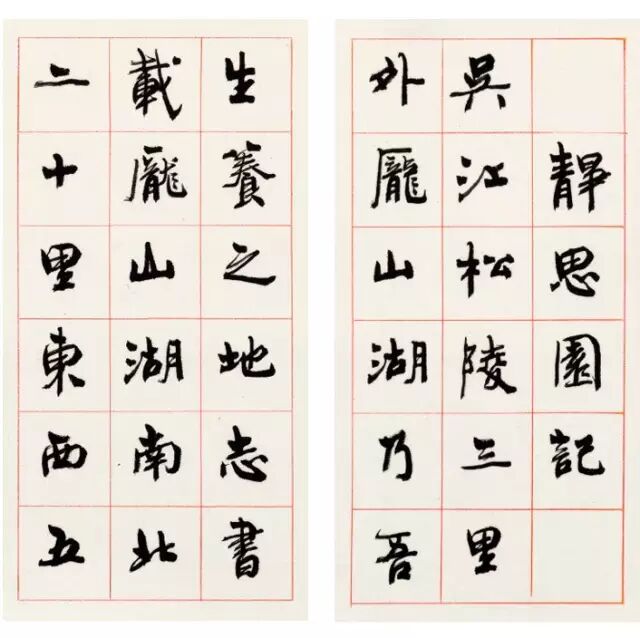 靜思園記
吳江松陵三里
外龐山湖乃吾
生養之地志書
載龐山湖南北
二十里東西五